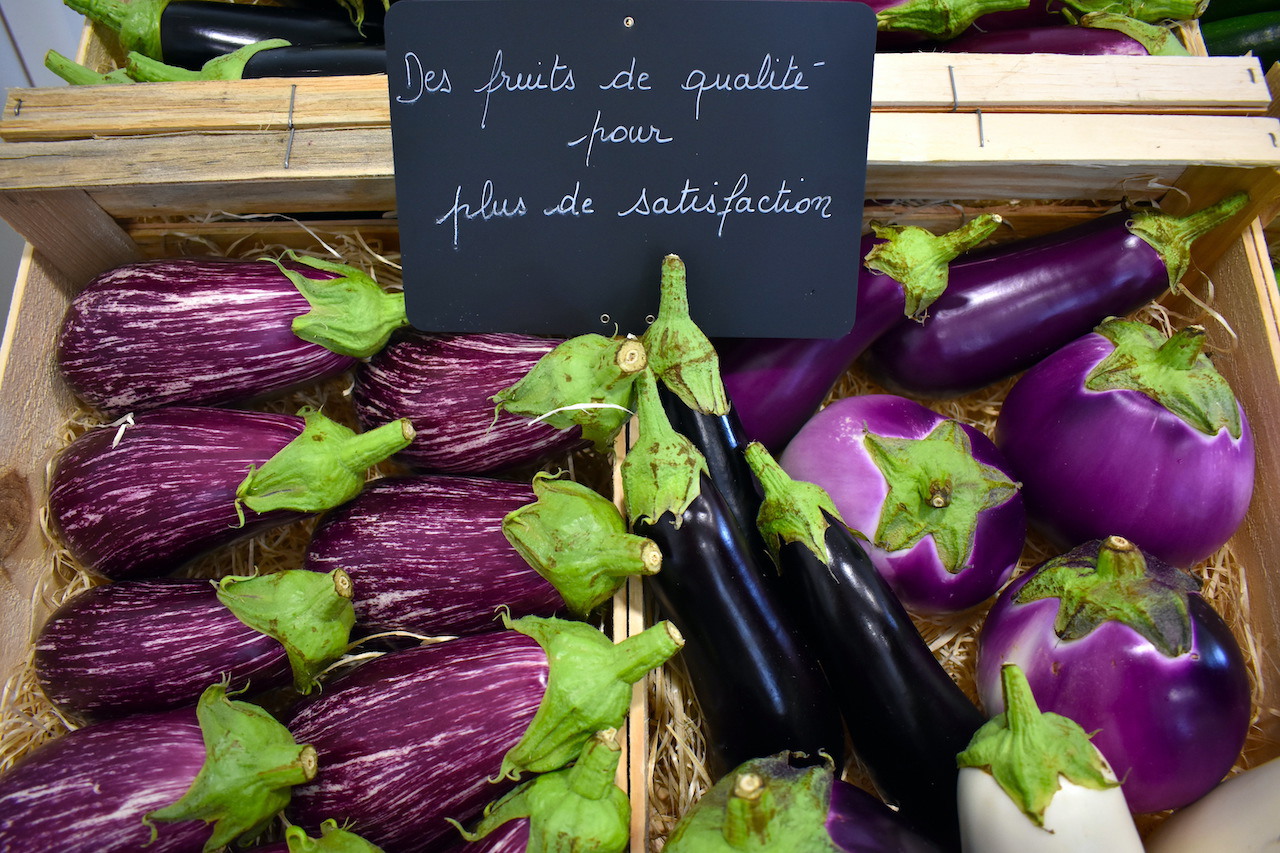 Des fruits de qualité
pour
plus de satisfaction